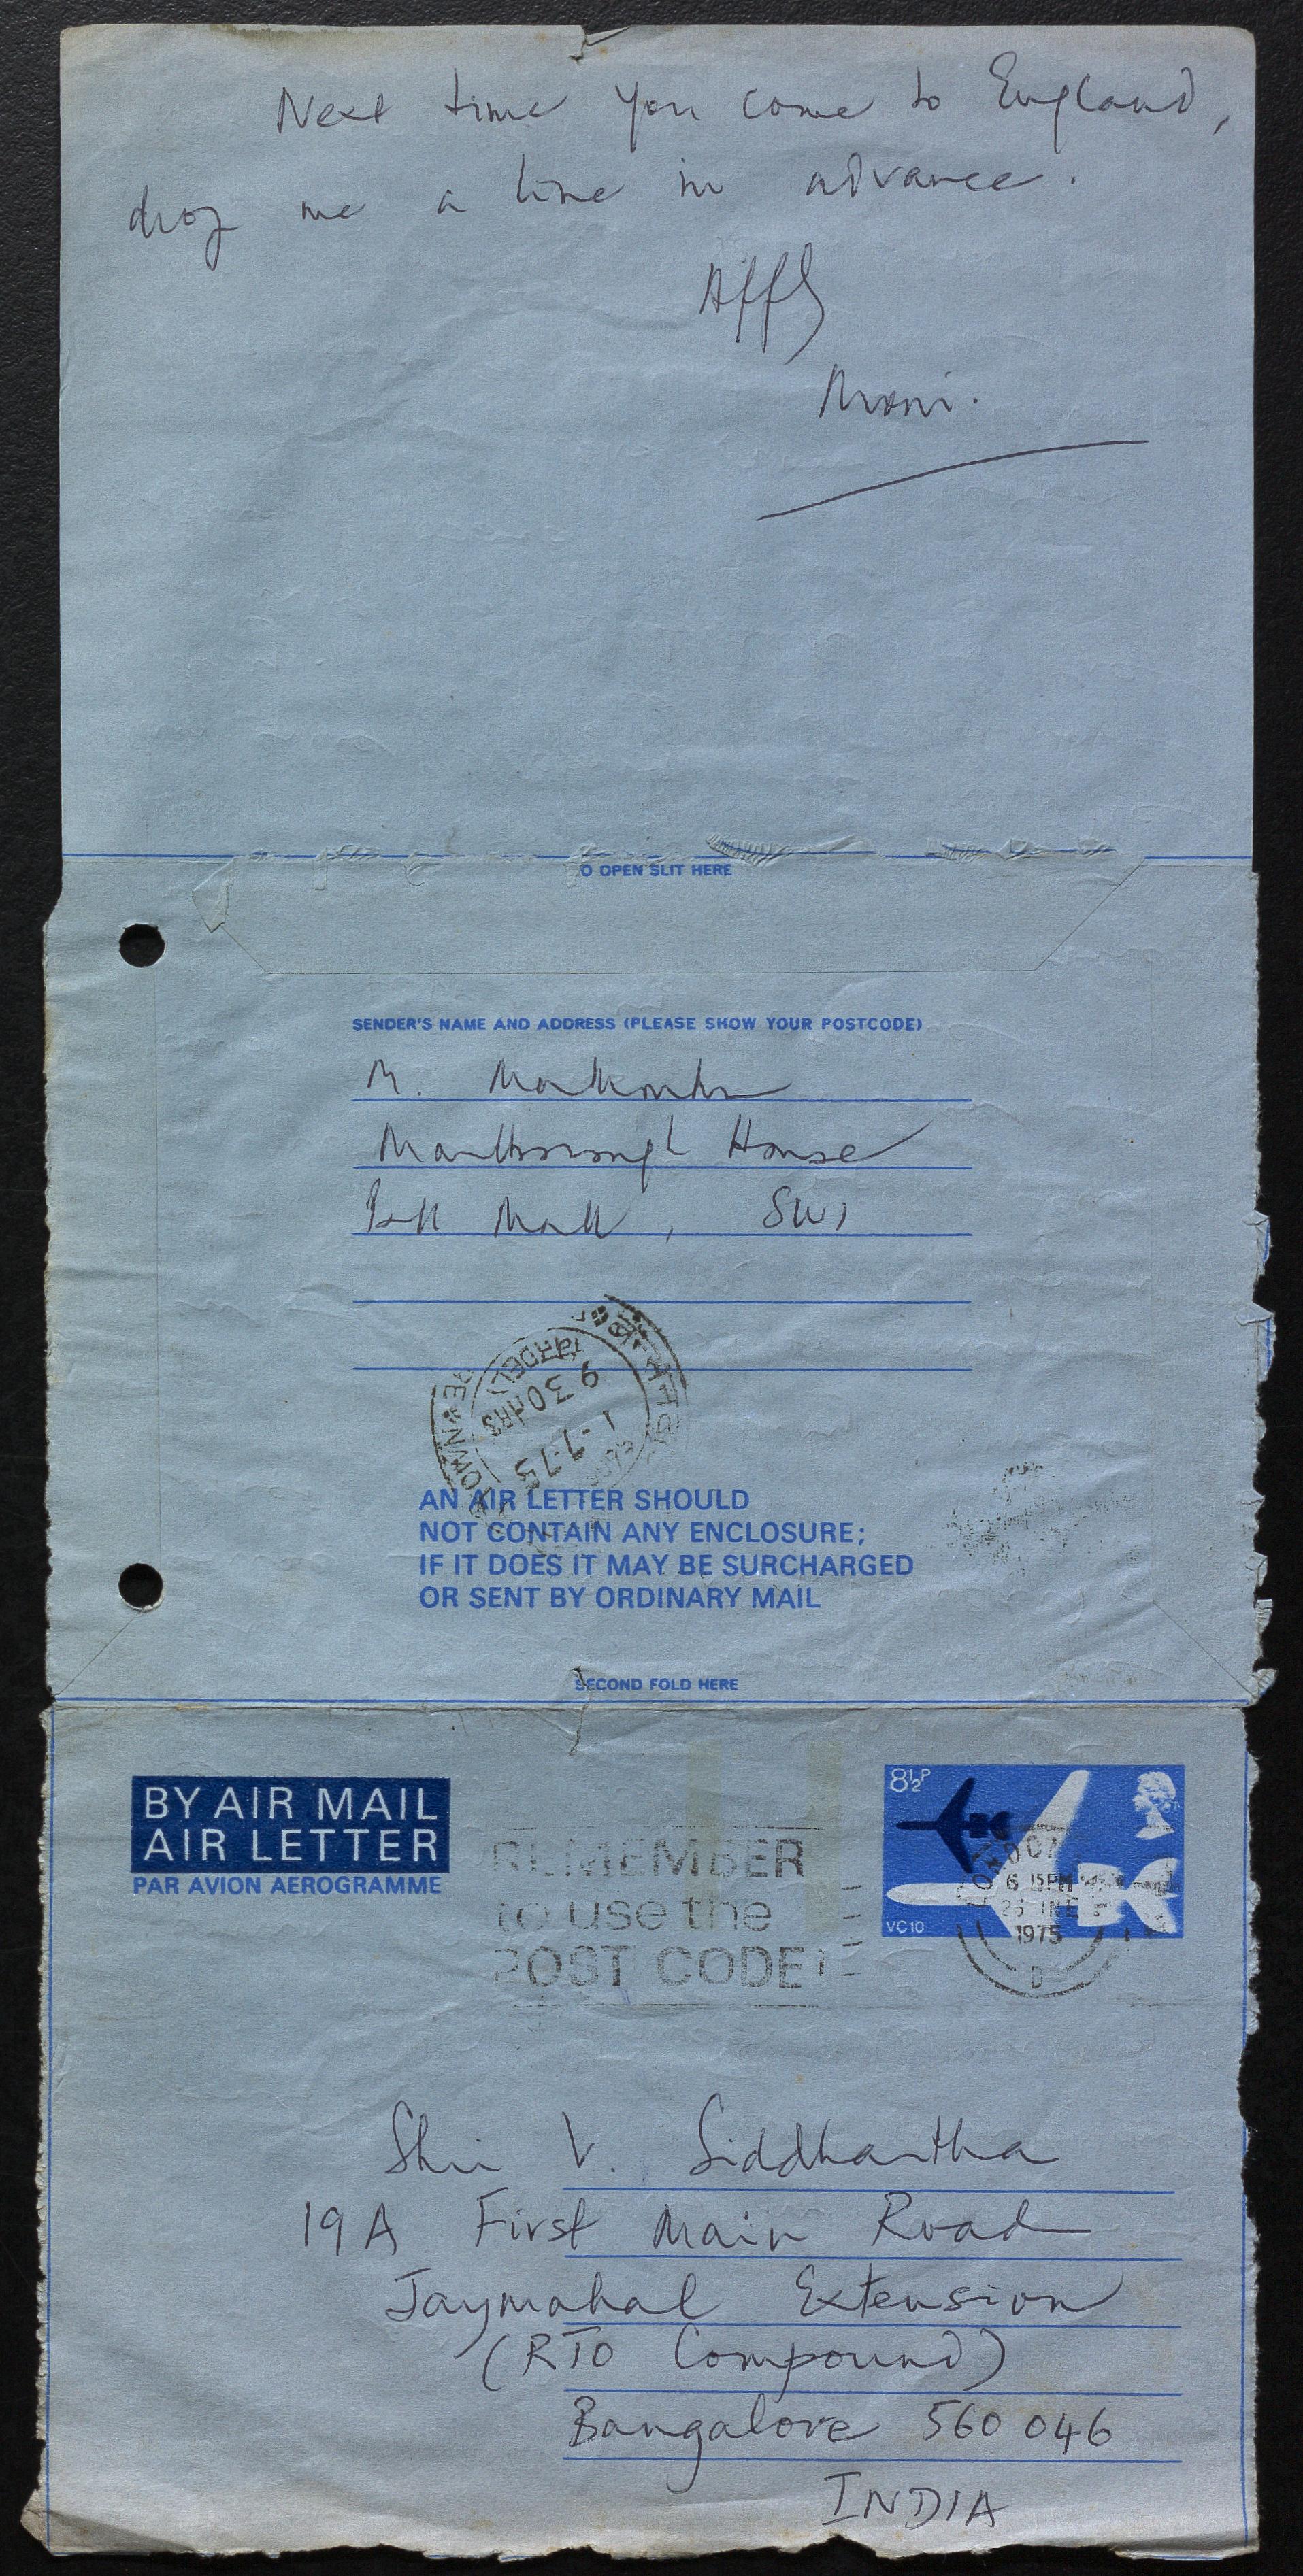 Next time you come to England,
drop me a line in advance.
Affly
Moni.
O OPEN SLIT HERE
SENDER'S NAME AND ADDRESS (PLEASE SHOW YOUR POSTCODE)
M.
Marlborough House
Pall Mall, SW1
9 30HRS
1-7-75
AN AIR LETTER SHOULD
NOT CONTAIN ANY ENCLOSURE;
IF IT DOES IT MAY BE SURCHARGED
OR SENT BY ORDINARY MAIL
SECOND FOLD HERE
BY AIR MAIL
AIR LETTER
PAR AVION AEROGRAMME
REMEMBER
to use the
POST CODE
8½P
VC10
6 15PM
1975
D
Shri V. Siddhartha
19A First Main Road
Jaymahal Extension
(RTO Compound)
Bangalore 560 046
INDIA